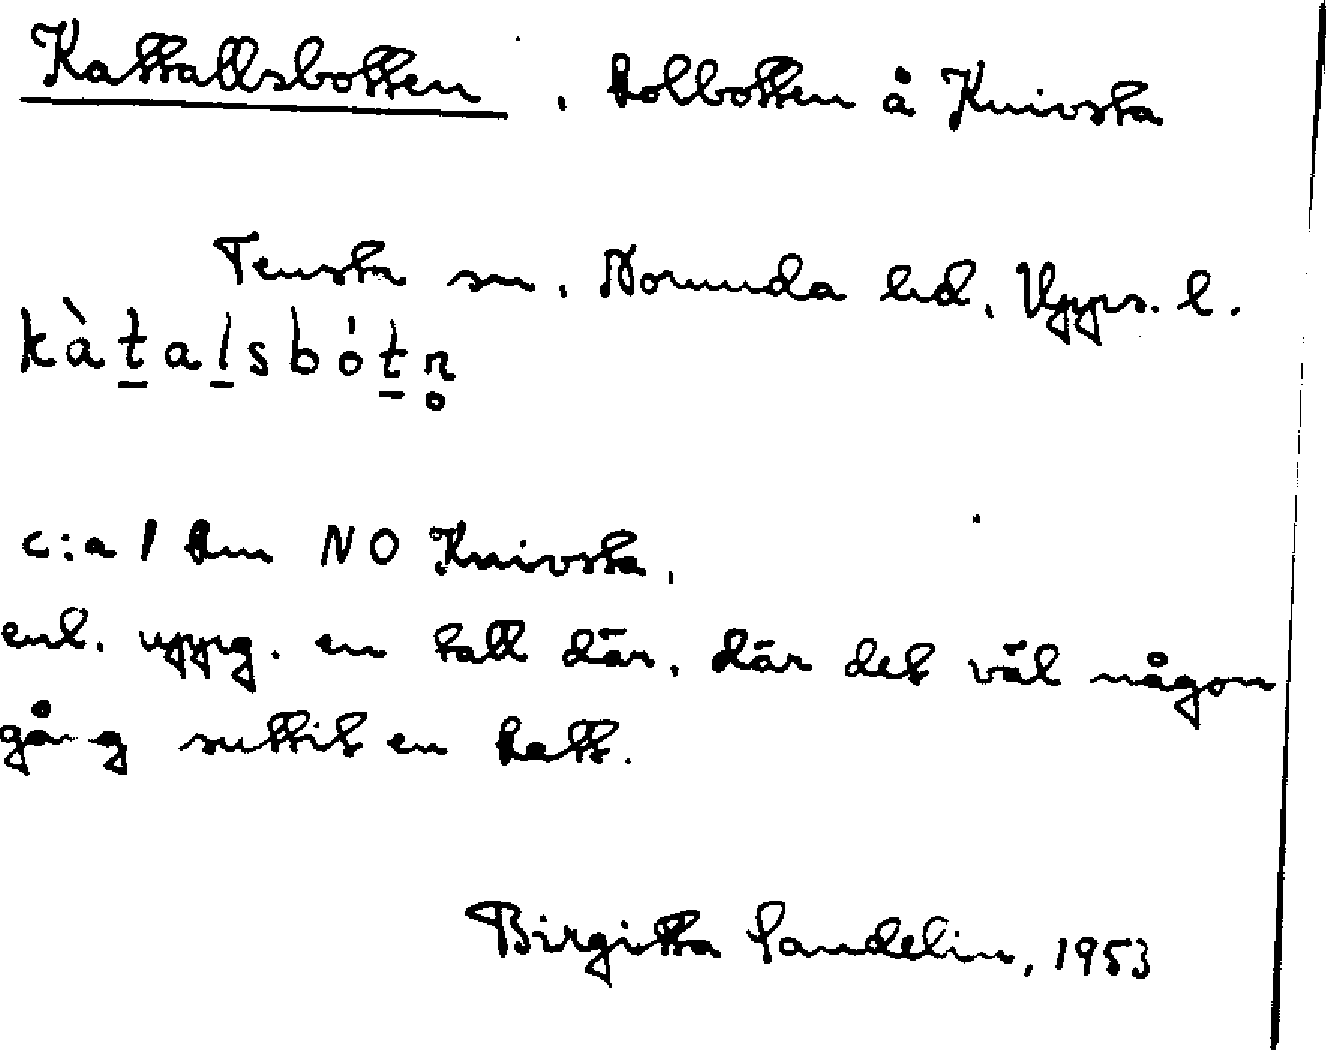 Kattallsbotten, kolbotten å Knivsta
Tensta sn, Norunda hd, Upps. l.
kàt̠al̠sbót̠n̥
c:a 1 km NO Knivsta,
enl. uppg. en tall där, där det väl någon
gång suttit en katt.
Birgitta Sandelin, 1953